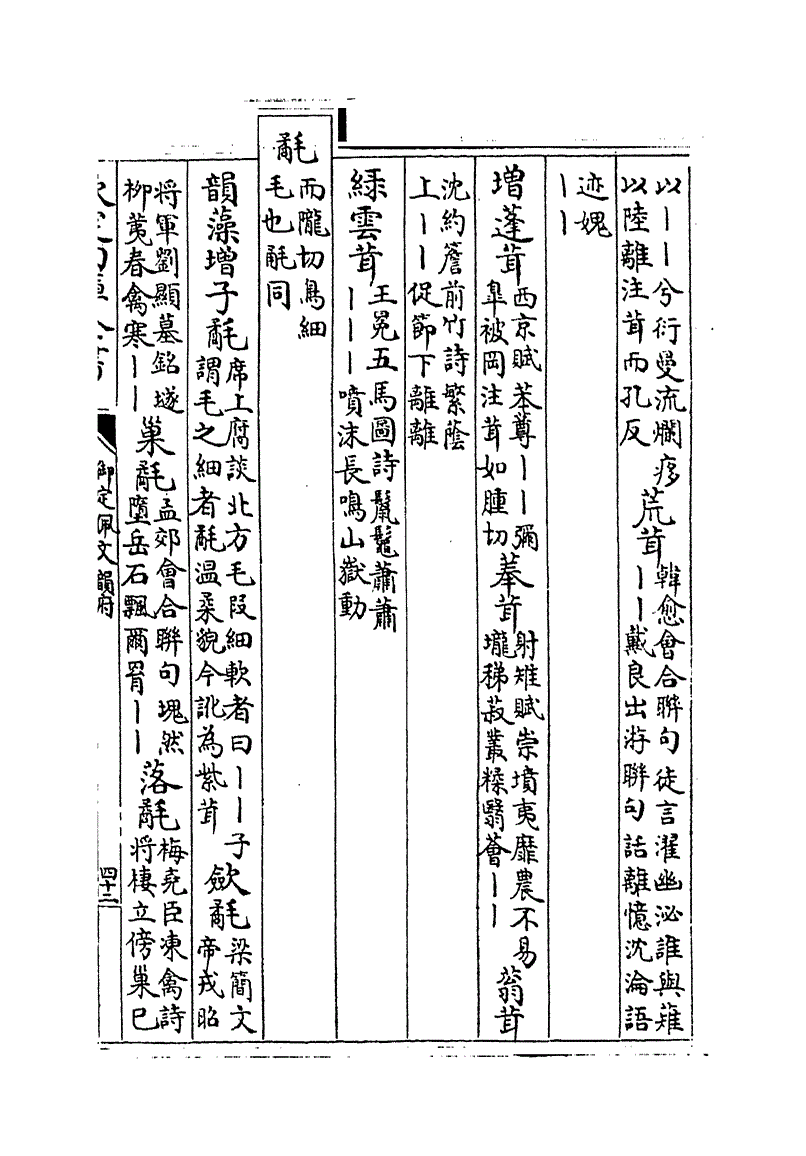 以丨丨兮衍曼流爛㾕
以陸離注茸而孔反
荒茸
韓愈會合聯句徒言濯幽泌誰與薙
丨丨戴良出游聯句話離憶沈淪語
迹媿
丨丨
增蓬茸
西京賦苯䔿丨丨彌
臯被岡注茸如腫切
菶茸
射雉賦崇墳夷靡農不易
壠稊菽叢糅翳薈丨丨
蓊茸
沈約簷前竹詩繁蔭
上丨丨促節下離離
綠雲茸
王冕五馬圖詩鬛鬉蕭蕭
丨丨丨噴沫長鳴山嶽動
氄
而隴切鳥細
毛也毹同
韻藻增子氄
席上腐談北方毛段細軟者曰丨丨子
謂毛之細者氄温柔貌今訛為紫茸
歛氄
梁簡文
帝戎昭
將軍劉顯墓銘㙜
柳荑春禽寒丨丨
巢氄
孟郊會合聯句瑰然
墮岳石飄爾罥丨丨
落氄
梅堯臣凍禽詩
將棲立傍巢已
御定佩文韻府
四十二